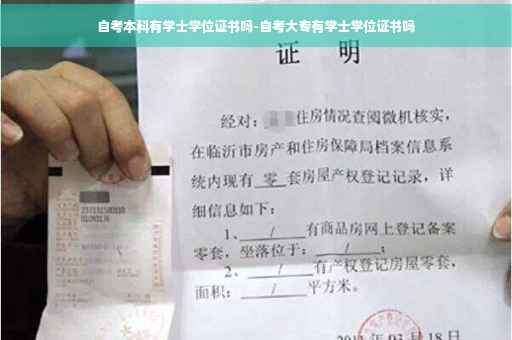 自考本科有学士学位证书吗-自考大专有学士学位证书吗
证 明
经对：住房情况查阅微机核实，
在临沂市房产和住房保障局档案信息系
统内现有 零 套房屋产权登记记录，详
细信息如下：
1、 / 有商品房网上登记备案
零套，坐落位于： / ；
2、 / 有产权登记房屋零套，
面积： / 平方米。
03 月 18 日